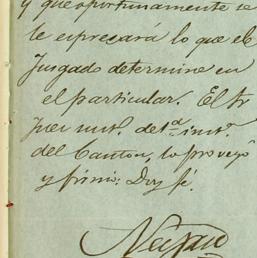 y que oportunamente se
le espresará lo que el
Juzgado determine en
el particular. El Sr
Juez int. de 1ª inst.
del Canton, lo proveyó
y firmó: Doy fé.